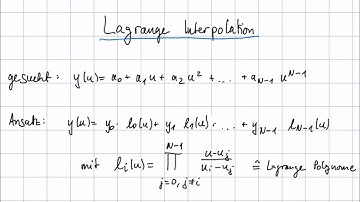 Lagrange Interpolation
gesucht: y(u) = a₀ + a₁ u + a₂ u² + ... + a_{N-1} u^{N-1}
Ansatz: y(u) = y₀ · l₀(u) + y₁ l₁(u) + ... + y_{N-1} l_{N-1}(u)
mit l_i(u) = ∏_{j=0, j≠i}^{N-1} (u-u_j)/(u_i-u_j) ≙ Lagrange Polynome